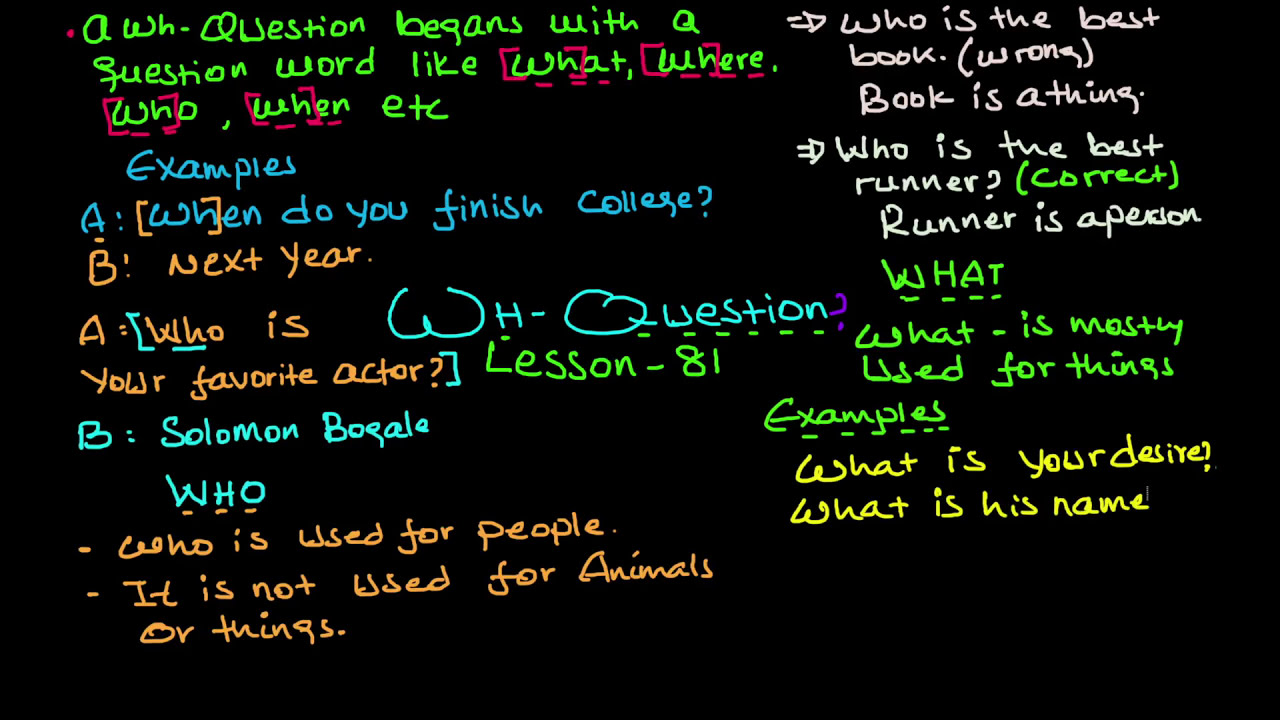 • A Wh-Question begans with a
question word like [Wh]at, [Wh]ere.
[Wh]o, [Wh]en etc
Examples
A: [Wh]en do you finish College?
B: Next year.
A: [Who is
your favorite actor?]
B: Solomon Bogale
WHO
- Who is used for people.
- It is not used for Animals
Or things.
WH- Question?
Lesson - 81
⇒ Who is the best
book. (wrong)
Book is a thing.
⇒ Who is the best
runner? (Correct)
Runner is a person
WHAT
What - is mostly
used for things
Examples
What is your desire?
What is his name